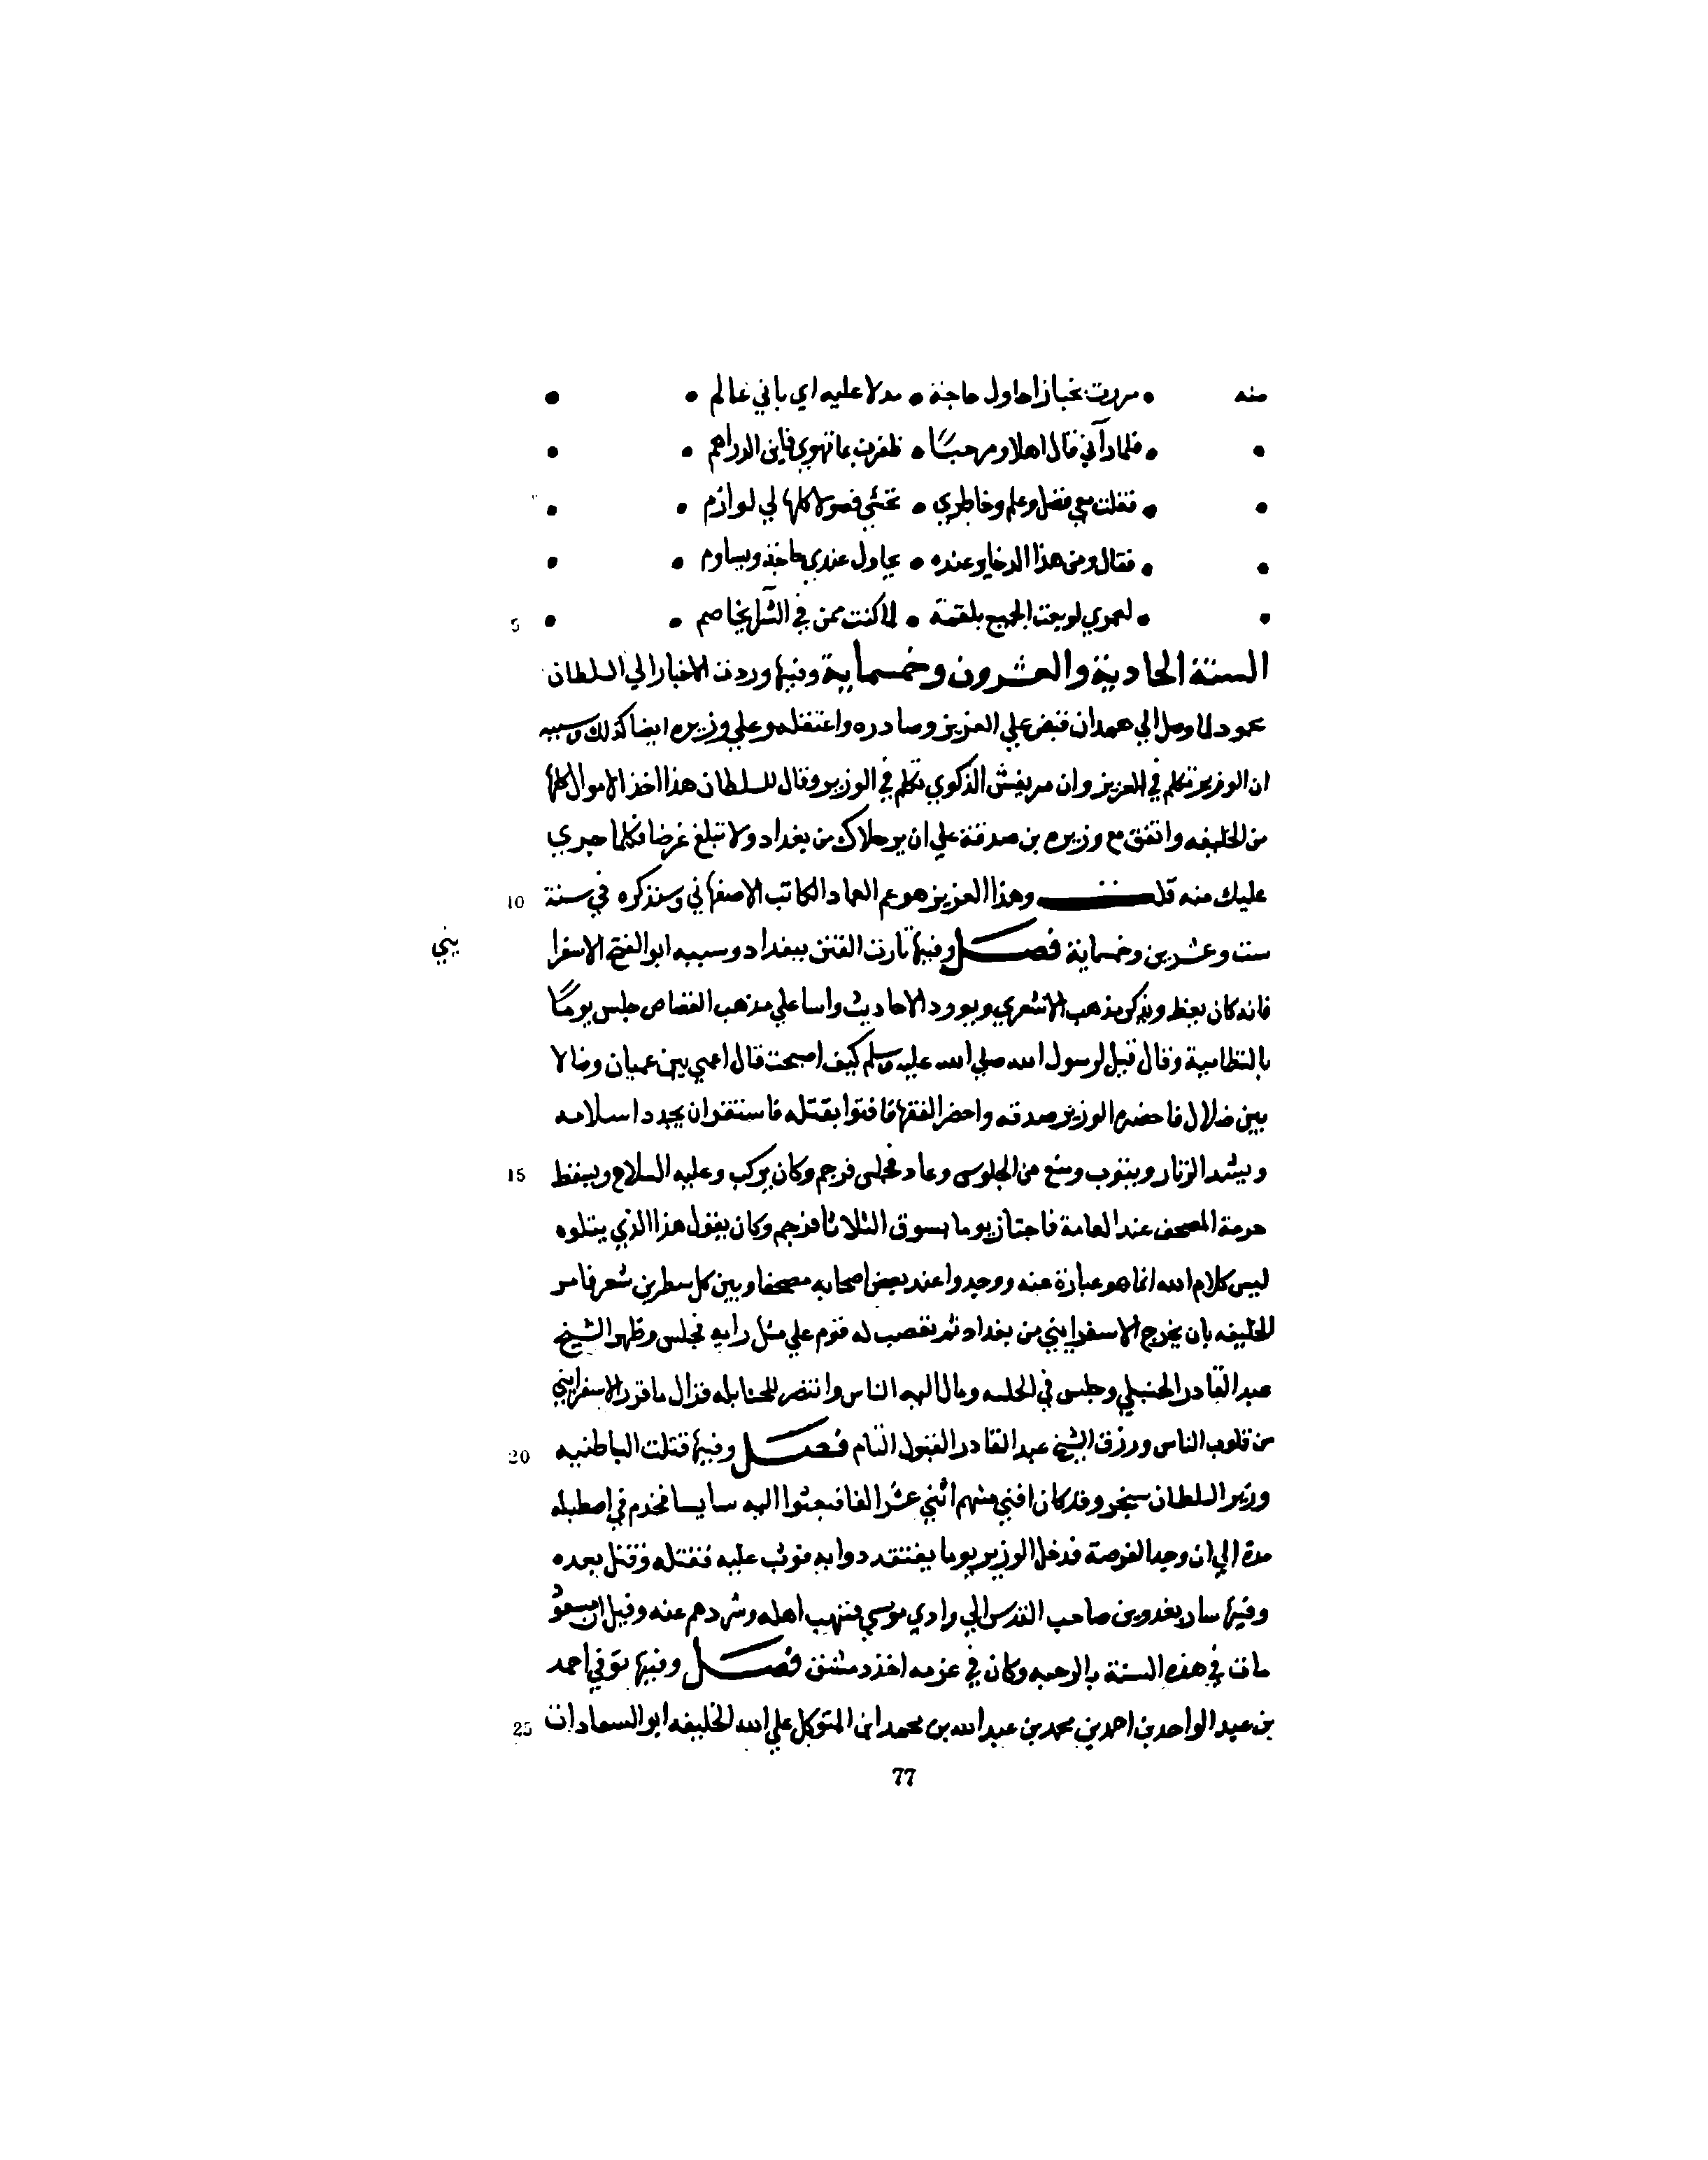 منه • مررت بخباز احاول حاجة • مدلا عليه اي باني عالم • •
• • فلما رآني قال اهلا ومرحبًا • ظفرت بما تهوي فاين الدراهم • •
• • فقلت معي فضل وعلم وخاطري • فصولا كلها لي لوازم • •
• • فقال ومن هذا الدخا وعنده • يحاول عندي حاجة ويساوم • •
• • لعمري لو بعت الجميع بلقمة • لما كنت ممن في يخاصم • • 5
السنة الحادية والعشرون وخمسماية وفيها وردت الاخبار الي السلطان
محمود لما وصل الي همدان قبض علي العزيز وصادره واعتقله وعلي وزيره ايضا كذلك وسببه
ان الوزير تكلم في العزيز وان الزكوي تكلم في الوزير وقال للسلطان هذا اخذ الاموال كلها
من الخليفه واتفق مع وزيره بن صدقة علي ان يرحلاك من بغداد ولا تبلغ غرضا فكلما جري
عليك منه قلت وهذا العزيز هو عم العماد الكاتب الاصفهاني وسنذكره في سنة 10
ست وعشرين وخمساية فصل وفيها ثارت الفتن ببغداد وسببه ابو الفتح الاسفرا يني
فانه كان يعظ ويذكر مذهب الاشعري ويورد الاحاديث واسا علي مذهب القصاص جلس يومًا
بالنظامية وقال قيل لرسول الله صلي الله عليه وسلم كيف اصبحت قال اعمي بين عميان وضالا
بين ضلال فاحضره الوزير صدقه واحضر الفقها فافتوا بقتله فاستقر ان يجدد اسلامه
ويشد الزنار ويتوب ومنع من الجلوس وعاد فجلس فرجم وكان يركب وعليه السلاح ويسقط 15
حرمة المصحف عند العامة فاجتاز يوما بسوق الثلاثا فرجم وكان يقول هذا الذي يتلوه
ليس كلام الله انما هو عبارة عنه ووجدوا عند بعض اصحابه مصحفا وبين كل سطرين شعر فامر
الخليفه بان يخرج الاسفرايني من بغداد ثم تعصب له قوم علي مثل رايه فجلس وظهر الشيخ
عبد القادر الحنبلي وجلس في الحلبه ومال اليه الناس وانتصر للحنابله فزال ما قرر الاسفرايني
من قلوب الناس ورزق الشيخ عبد القادر القبول التام فصل وفيها قتلت الباطنيه 20
وزير السلطان سنجر وقد كان افني منهم اثني عشر الفا فبعثوا اليه سايسا فخدم في اصطبله
مدة الي ان وجد الفرصة فدخل الوزير يوما يفتقد دوابه فوثب عليه فقتله وقتل بعده
وفيها سار بغدوين صاحب القدس الي وادي موسي فنهب اهله وشردهم عنه وقيل ان مسعود
مات في هذه السنة بالرحبه وكان في عزمه اخذ دمشق فصل وفيها توفي احمد
بن عبد الواحد بن احمد بن محمد بن عبد الله بن محمد ابن المتوكل علي الله الخليفه ابو السعادات 25
77